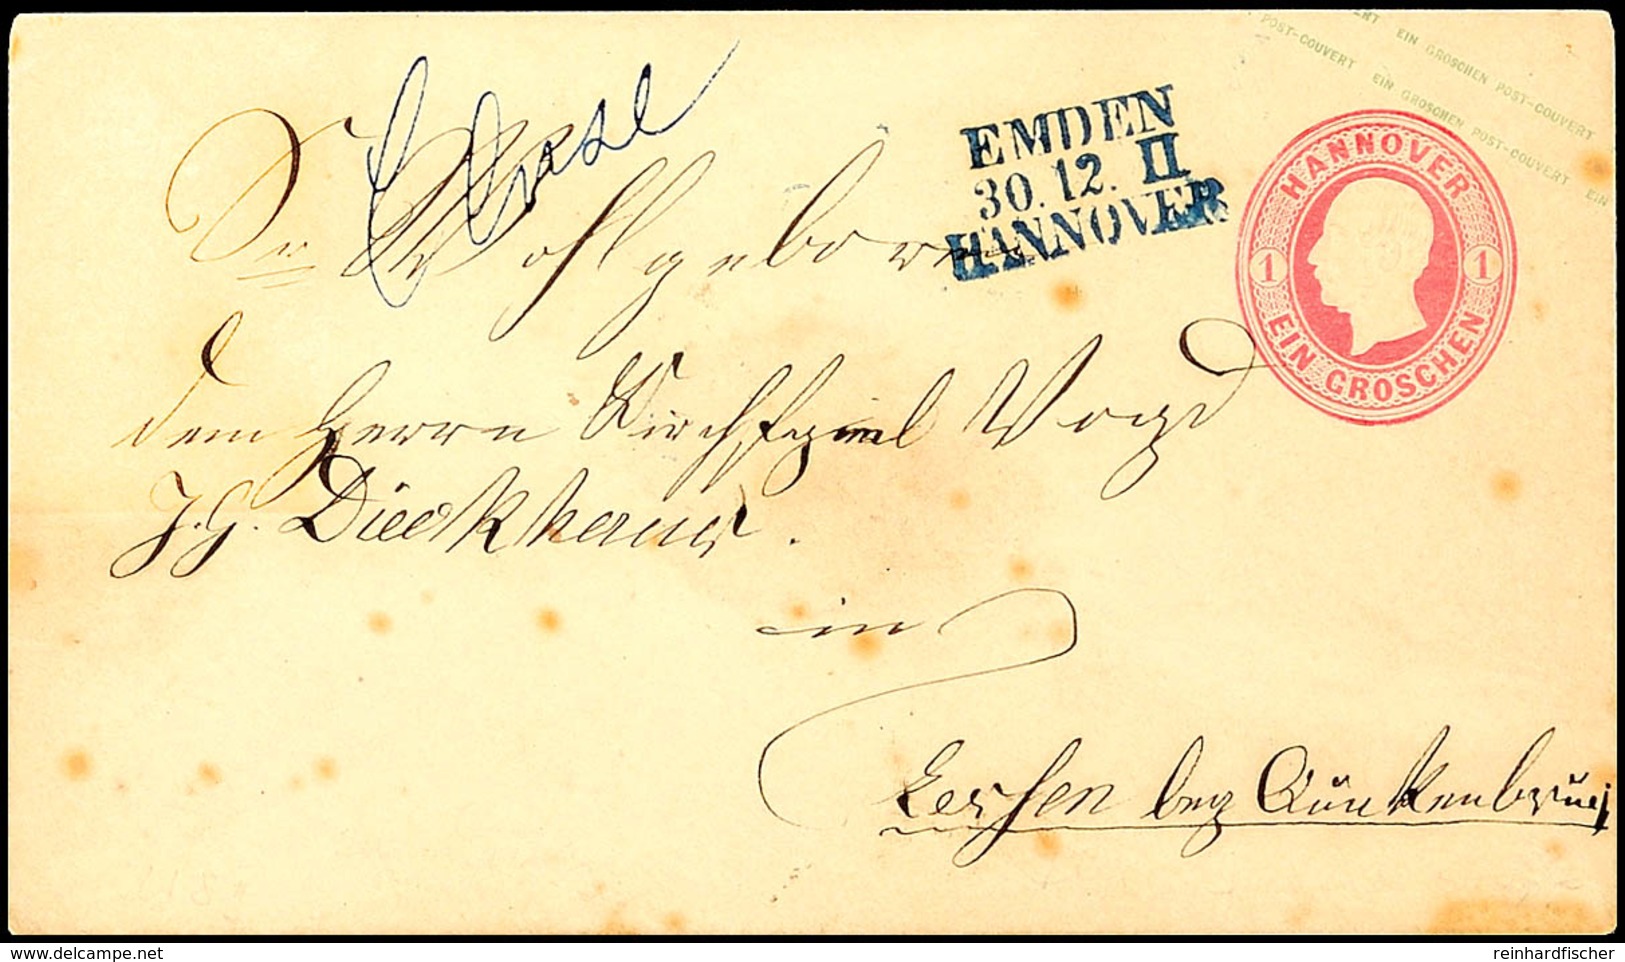 ERT EIN GROSCHEN POST-COUVERT
POST-COUVERT EIN GROSCHEN POST-COUVERT EIN
EMDEN
30. 12. II
HANNOVER
HANNOVER
1 1
EIN GROSCHEN
Sr Wohlgeboren
dem Herrn Kirchspiel Vogt
J. H. Dieckhaus.
in
bey Quakenbrück
reinhardfischer